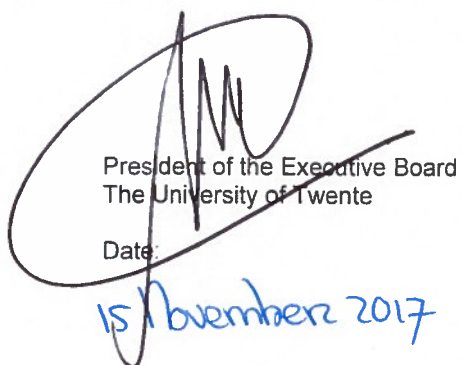 President of the Executive Board
The University of Twente
Date:
15 November 2017